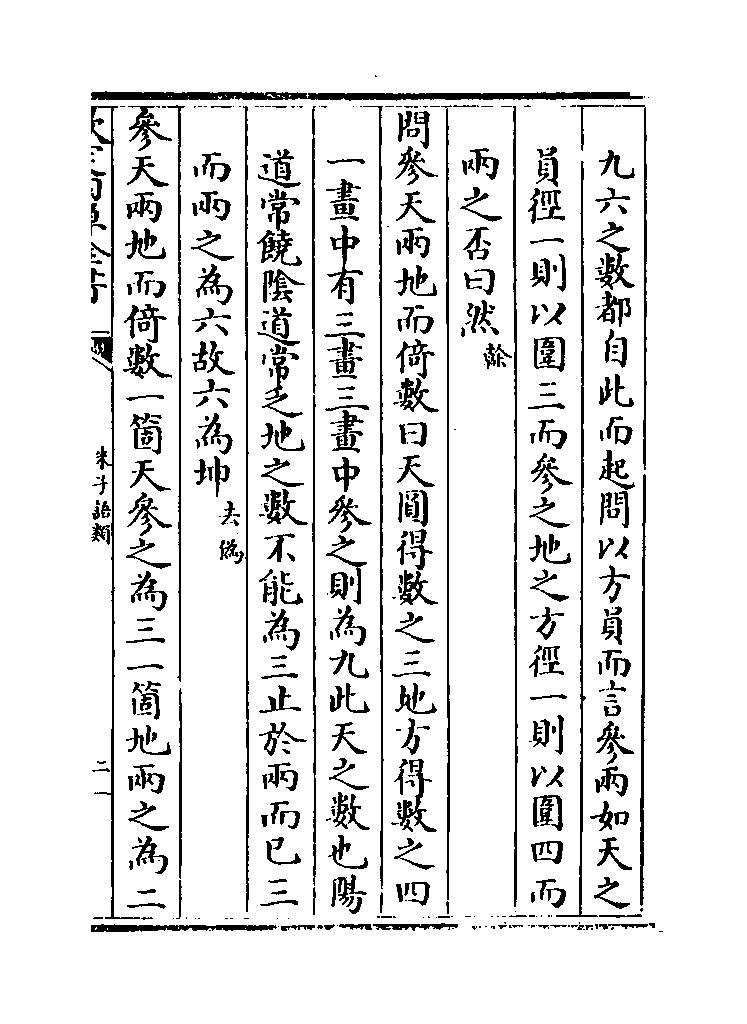 九六之數都自此而起問以方員而言參兩如天之
員徑一則以圍三而參之地之方徑一則以圍四而
兩之否曰然 榦
問參天兩地而倚數曰天圓得數之三地方得數之四
一畫中有三畫三畫中參之則為九此天之數也陽
道常饒陰道常乏地之數不能為三止於兩而已三
而兩之為六故六為坤 去偽
參天兩地而倚數一箇天參之為三一箇地兩之為二
朱子語類
二一